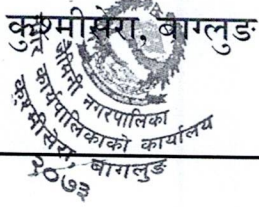 कुश्मीसेरा, बाग्लुङ
जैमिनी नगरपालिका
नगर कार्यपालिकाको कार्यालय
कुश्मीसेरा, बागलुङ
२०७३